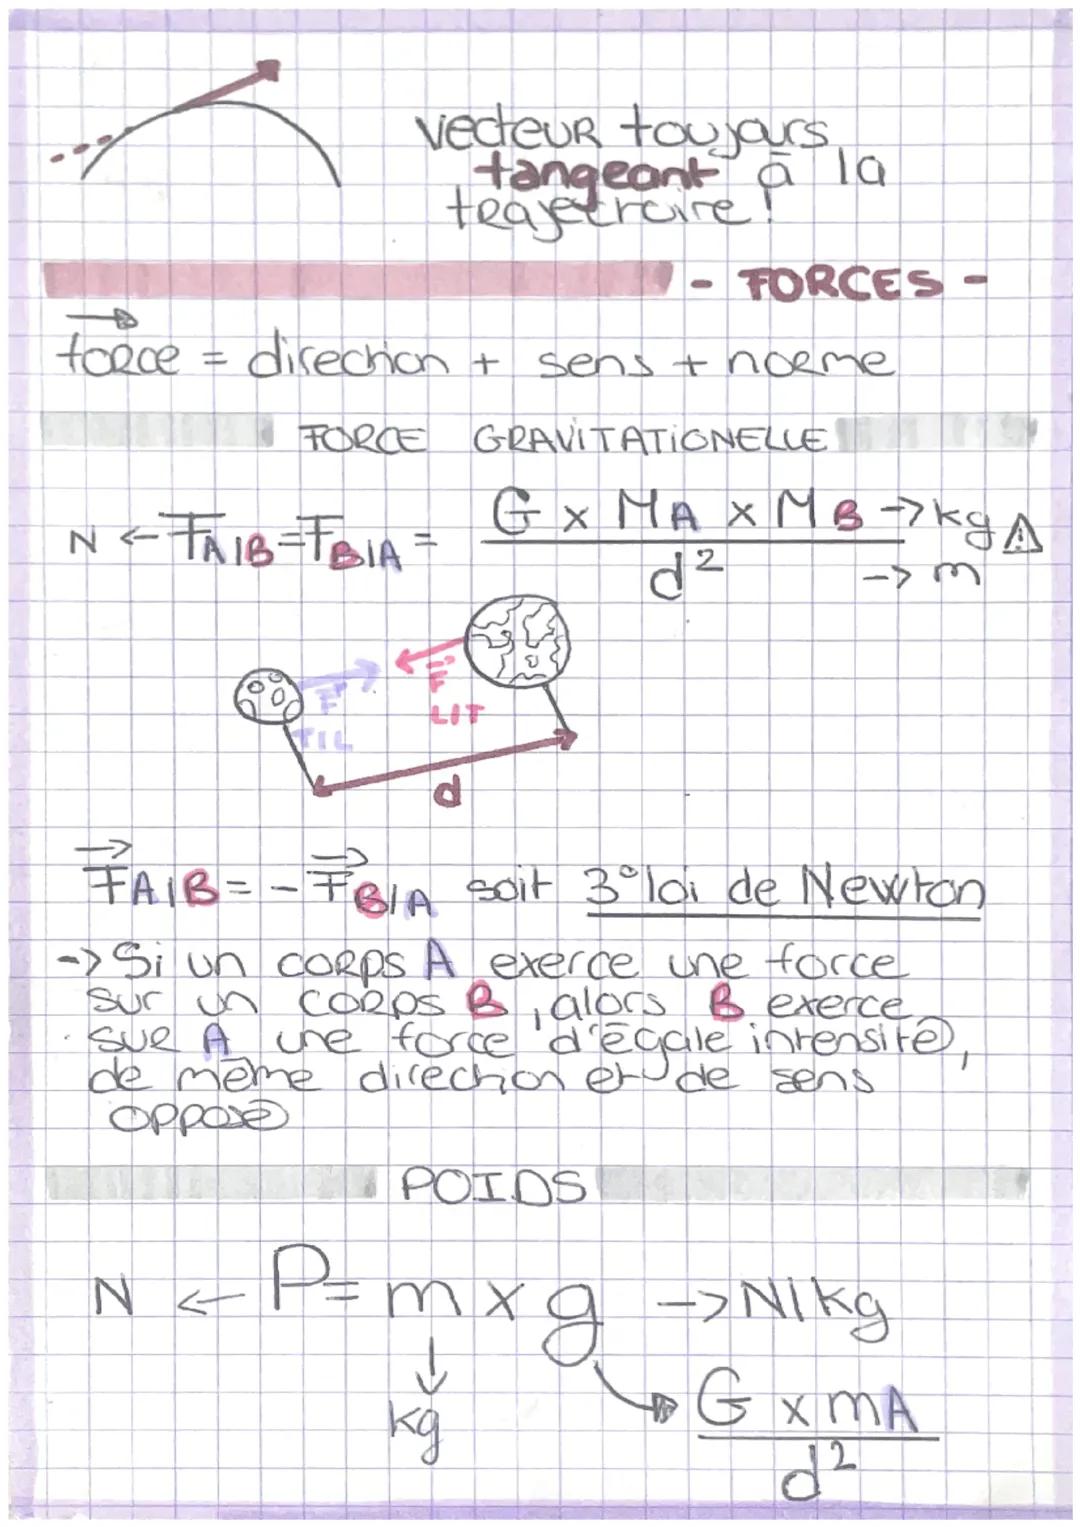 vecteur toujours
tangeant à la
trajectroire !
- FORCES -
force = direction + sens + norme
FORCE GRAVITATIONELLE
N <- FA/B = FB/A = G x MA x MB -> kg ⚠
d² -> m
F T/L
F L/T
d
FA/B = - FB/A soit 3° loi de Newton
-> Si un corps A exerce une force
sur un corps B, alors B exerce
sur A une force d'égale intensité,
de même direction et de sens
opposé
POIDS
N <- P = m x g -> N/kg
kg
G x mA
d²